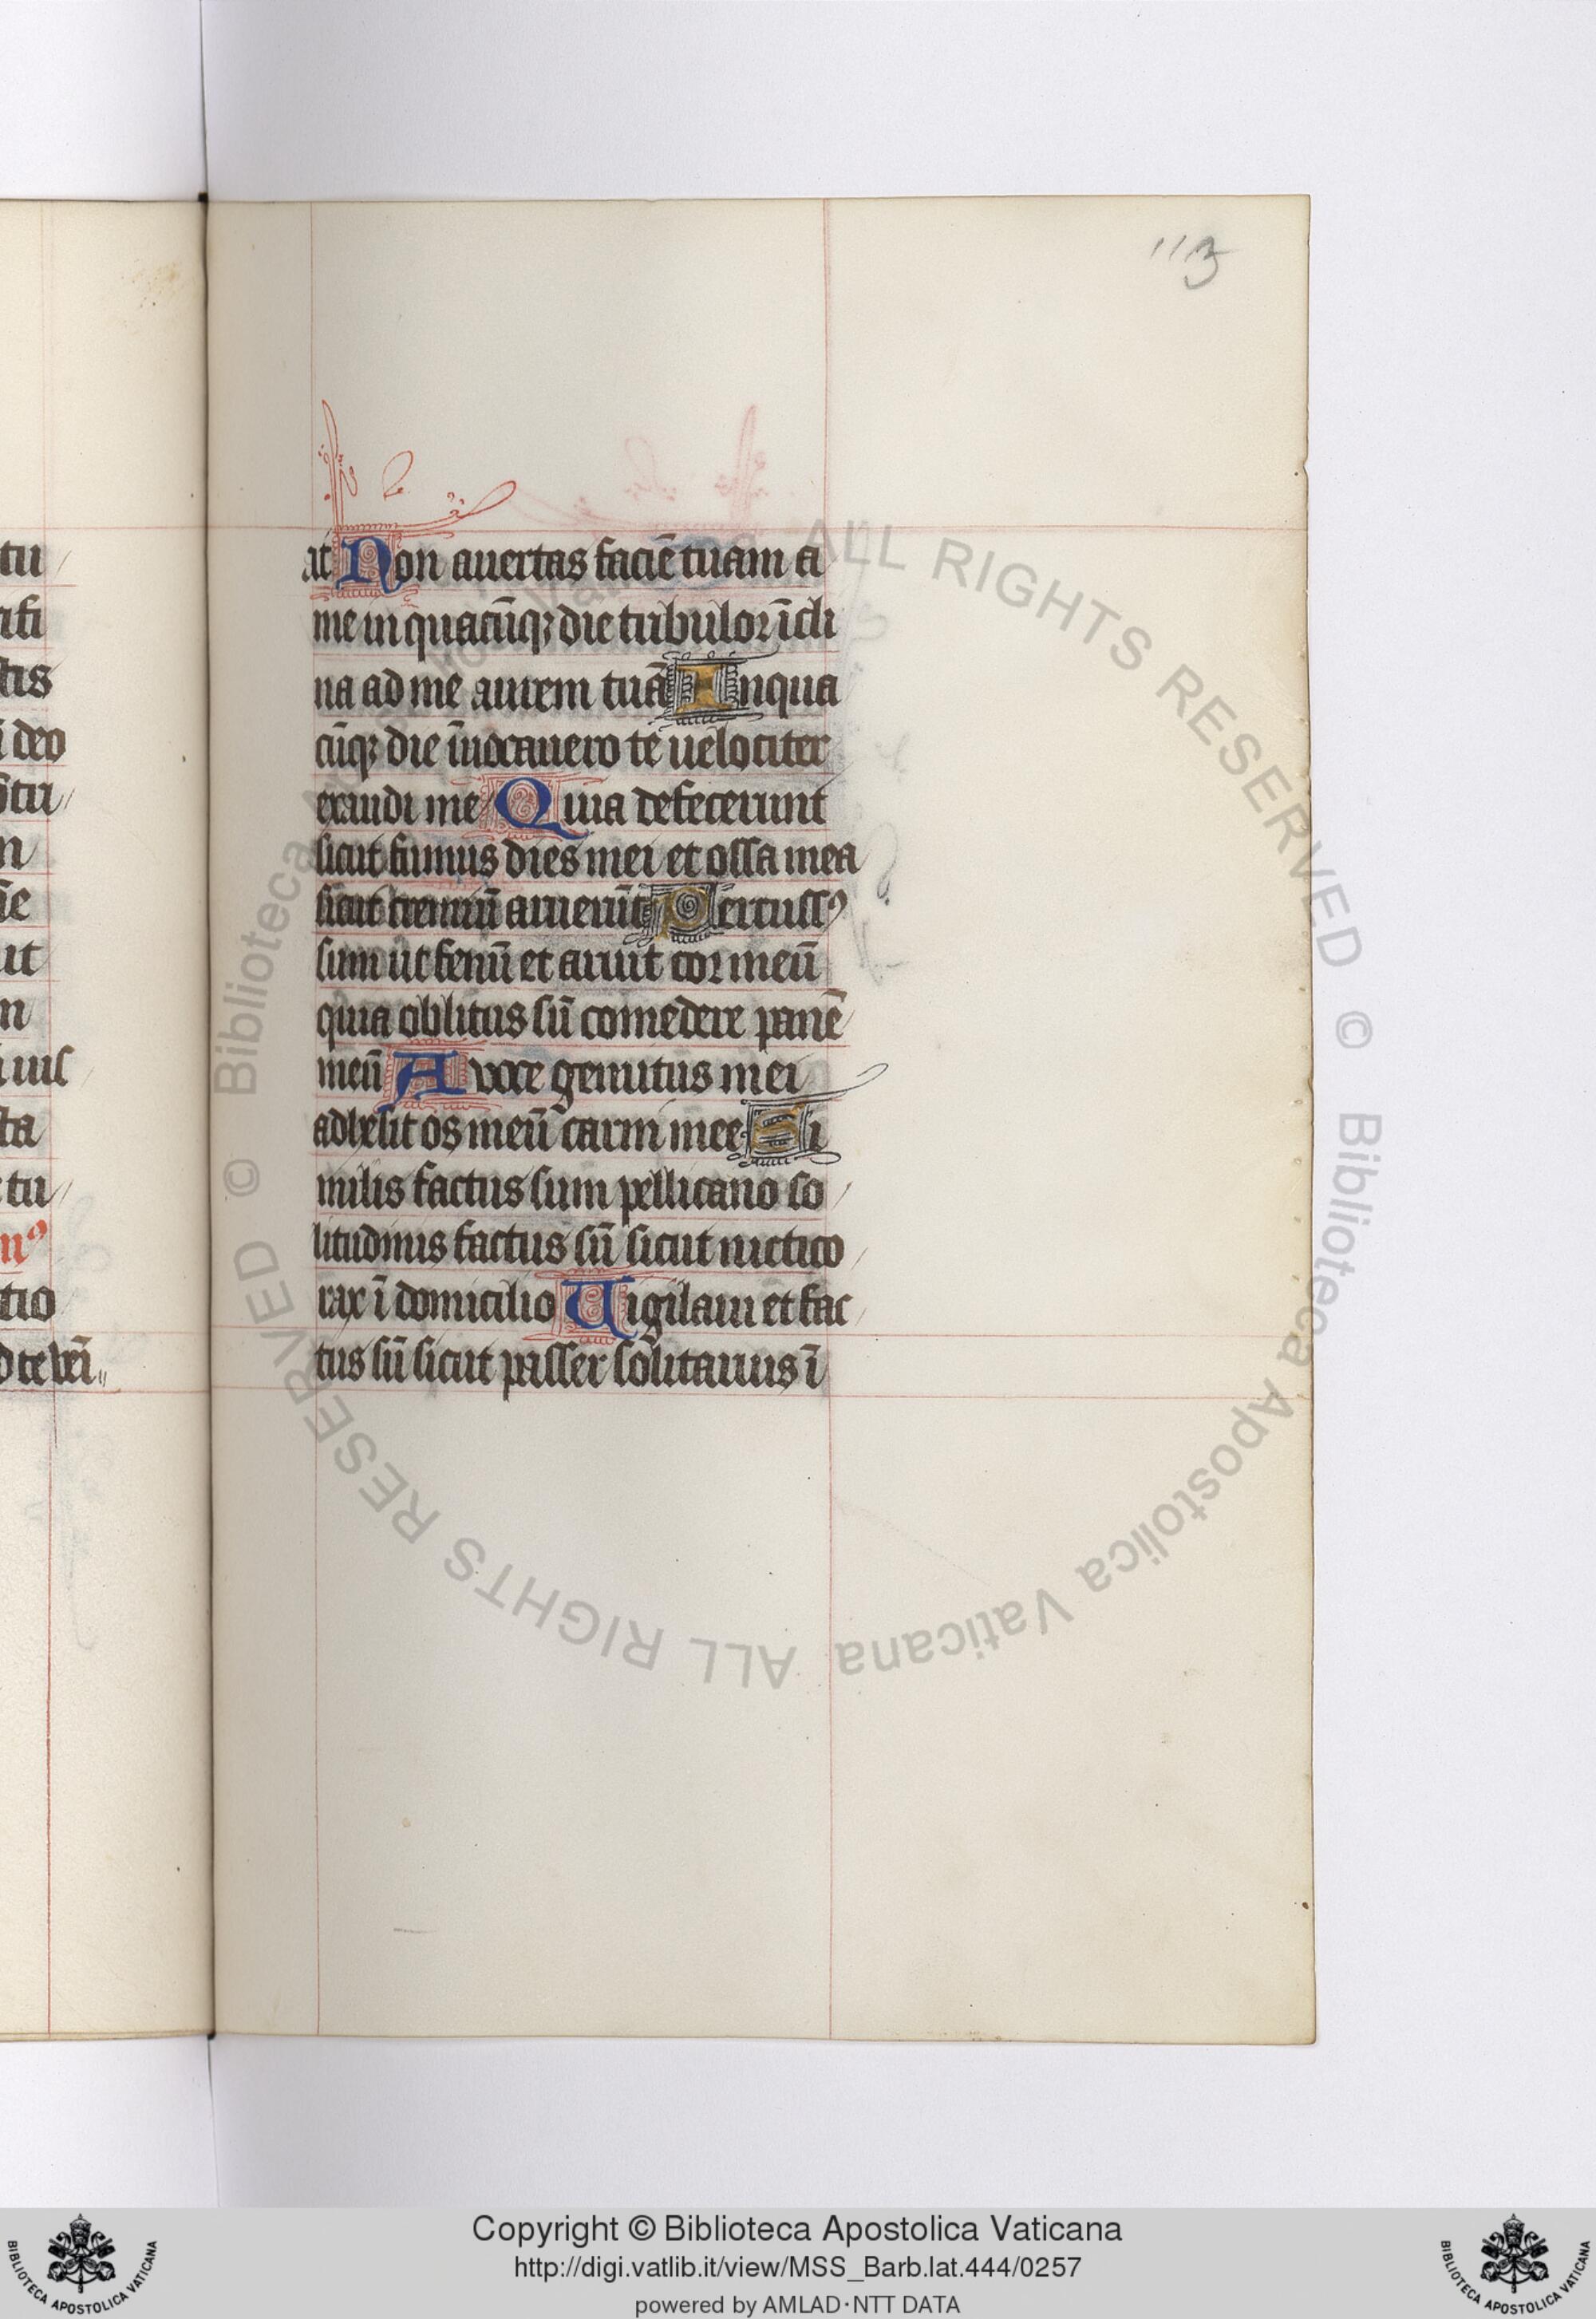 113
at Non auertas faciē tuam a
me in quacūqꝫ die tribulor īcli
na ad me aurem tuā Inqua
cūqꝫ die īuocauero te uelociter
exaudi me Quia defecerunt
sicut fumus dies mei et ossa mea
sicut cremiū aruerūt Percussꝰ
sum ut fenū et aruit cor meū
quia oblitus sū comedere panē
meū A uoce gemitus mei
adhesit os meū carni mee Si
milis factus sum pellicano so
litudinis factus sū sicut nictico
rax ī domicilio Uigilaui et fac
tus sū sicut passer solitarius ī
tu
tis
deo
tu
n
ut
n
ta
tu
tio
ALL RIGHTS RESERVED © Biblioteca Apostolica Vaticana ALL RIGHTS RESERVED © Biblioteca Apostolica Vaticana
Copyright © Biblioteca Apostolica Vaticana
http://digi.vatlib.it/view/MSS_Barb.lat.444/0257
powered by AMLAD·NTT DATA
BIBLIOTECA APOSTOLICA VATICANA
BIBLIOTECA APOSTOLICA VATICANA